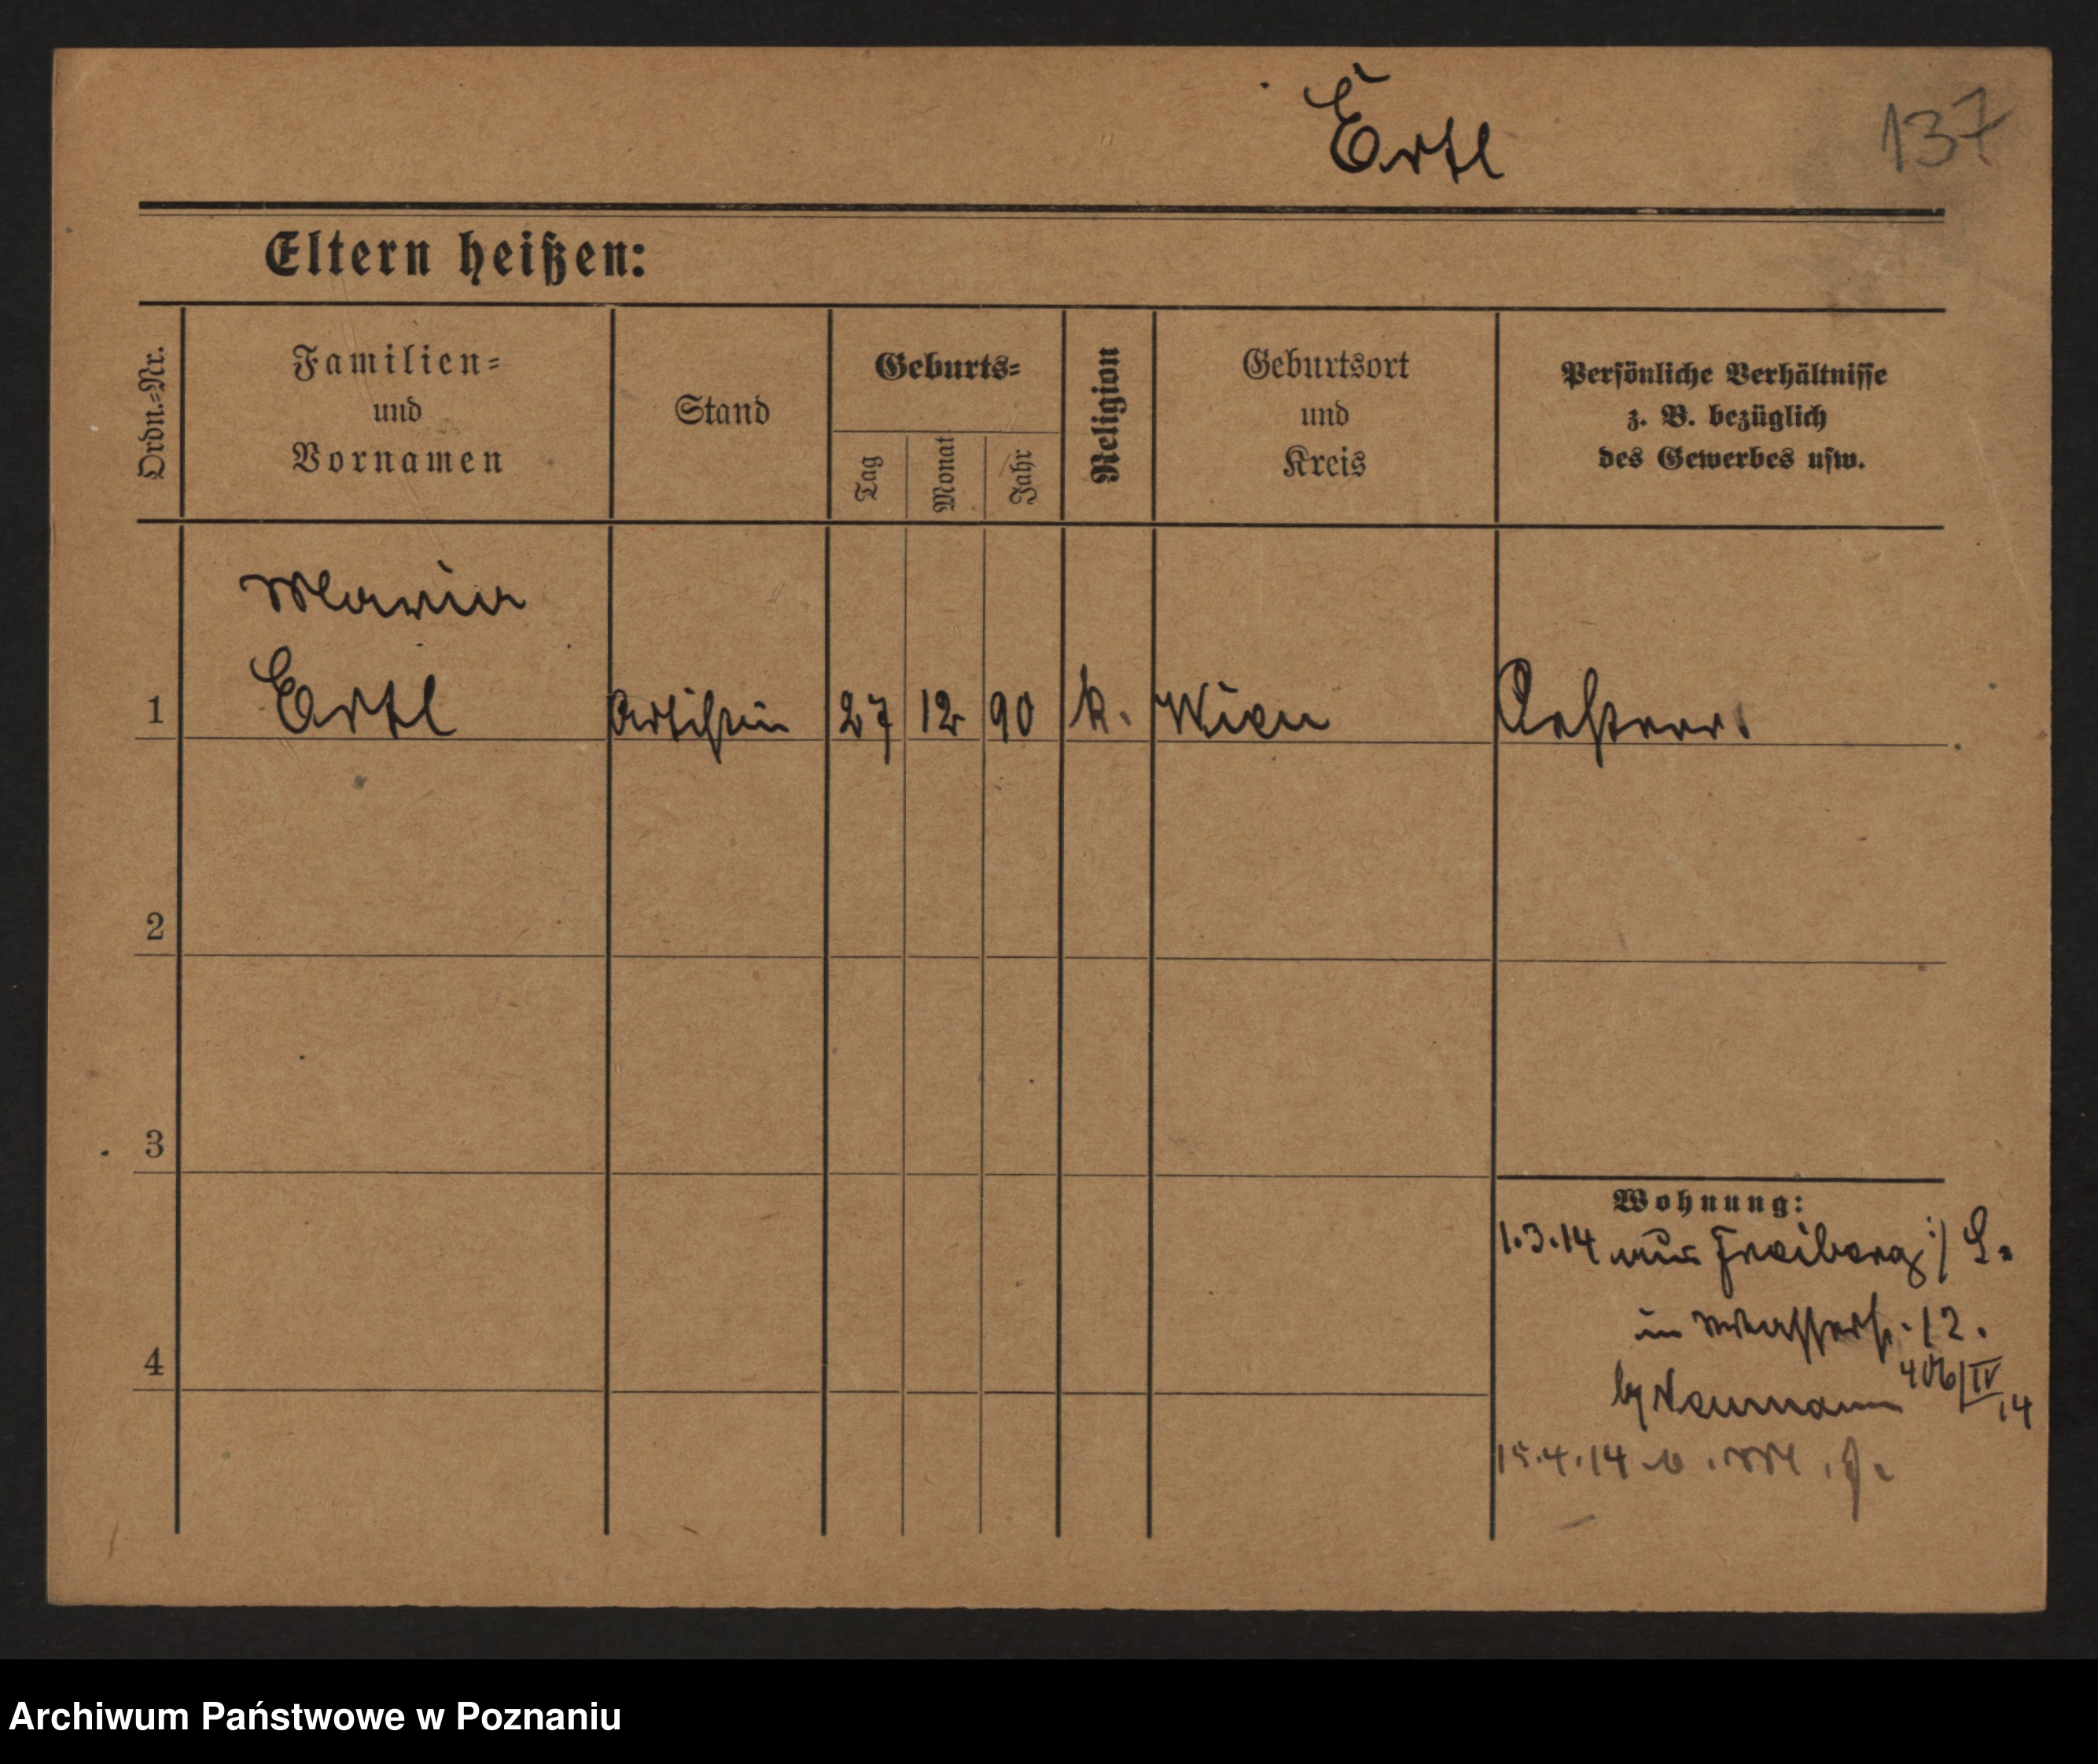 Ertl
137
Eltern heißen:
Ordn.=Nr.
Familien=
und
Vornamen
Stand
Geburts=
Tag
Monat
Jahr
Religion
Geburtsort
und
Kreis
Persönliche Verhältnisse
z. B. bezüglich
des Gewerbes usw.
Maria
1 Ertl Artistin 27 12 90 k. Wien Oesterr.
2
3
4
Wohnung:
1.3.14 aus Freiberg :/ S.
in Wasserst. 12.
by Neumann 406/IV 14
15.4.14
Archiwum Państwowe w Poznaniu